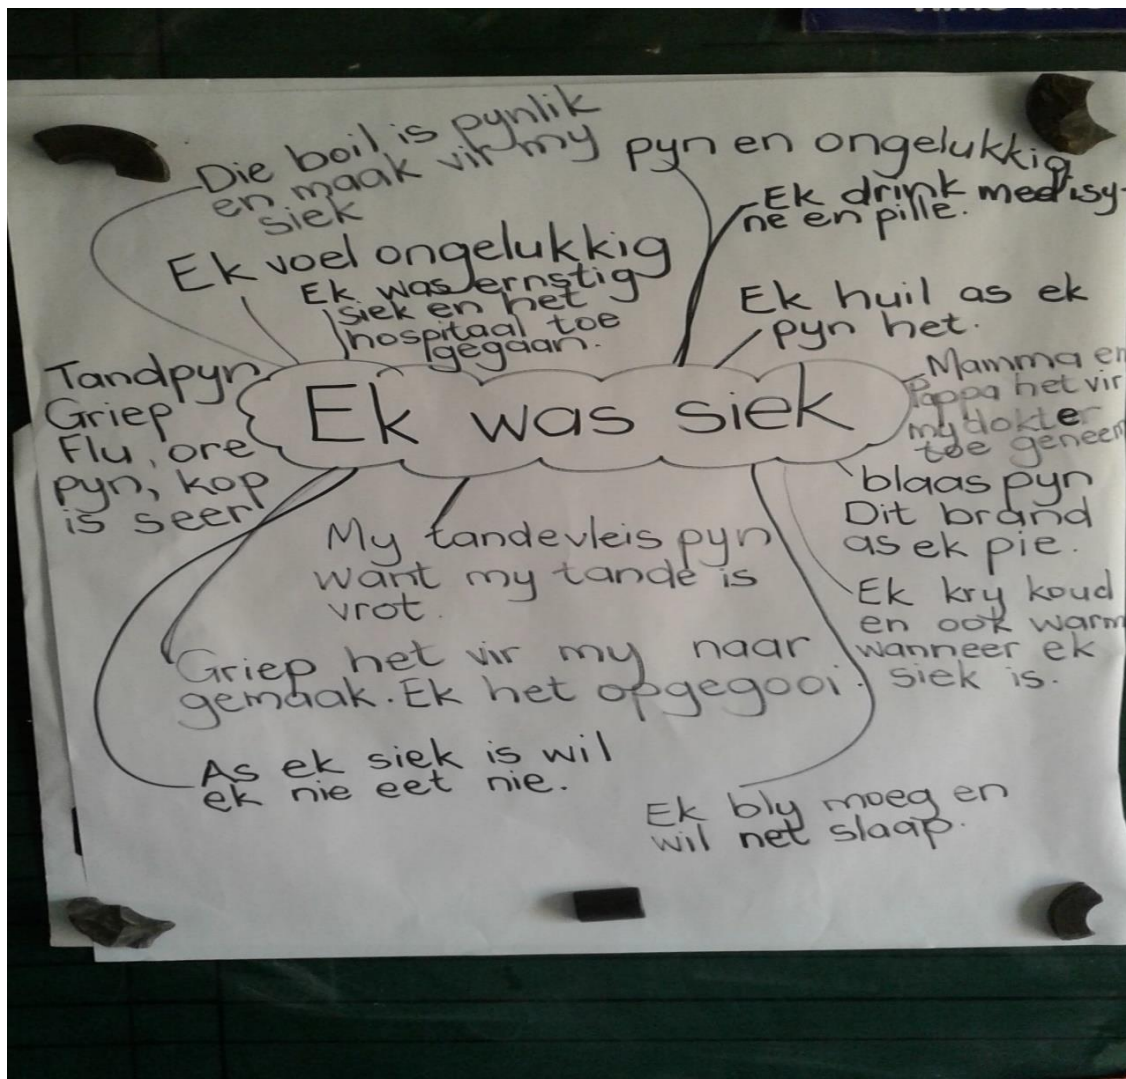 Die boil is pynlik
en maak vir my
siek
pyn en ongelukkig
Ek drink medisy-
ne en pille.
Ek voel ongelukkig
Ek was ernstig
siek en het
hospitaal toe
gegaan.
Ek huil as ek
pyn het.
Tandpyn
Griep
Flu, ore
pyn, kop
is seer
Ek was siek
Mamma en
Pappa het vir
my dokter
toe geneem
blaas pyn
Dit brand
as ek pie.
My tandevleis pyn
want my tande is
vrot.
Ek kry koud
en ook warm
wanneer ek
siek is.
Griep het vir my naar
gemaak. Ek het opgegooi.
As ek siek is wil
ek nie eet nie.
Ek bly moeg en
wil net slaap.